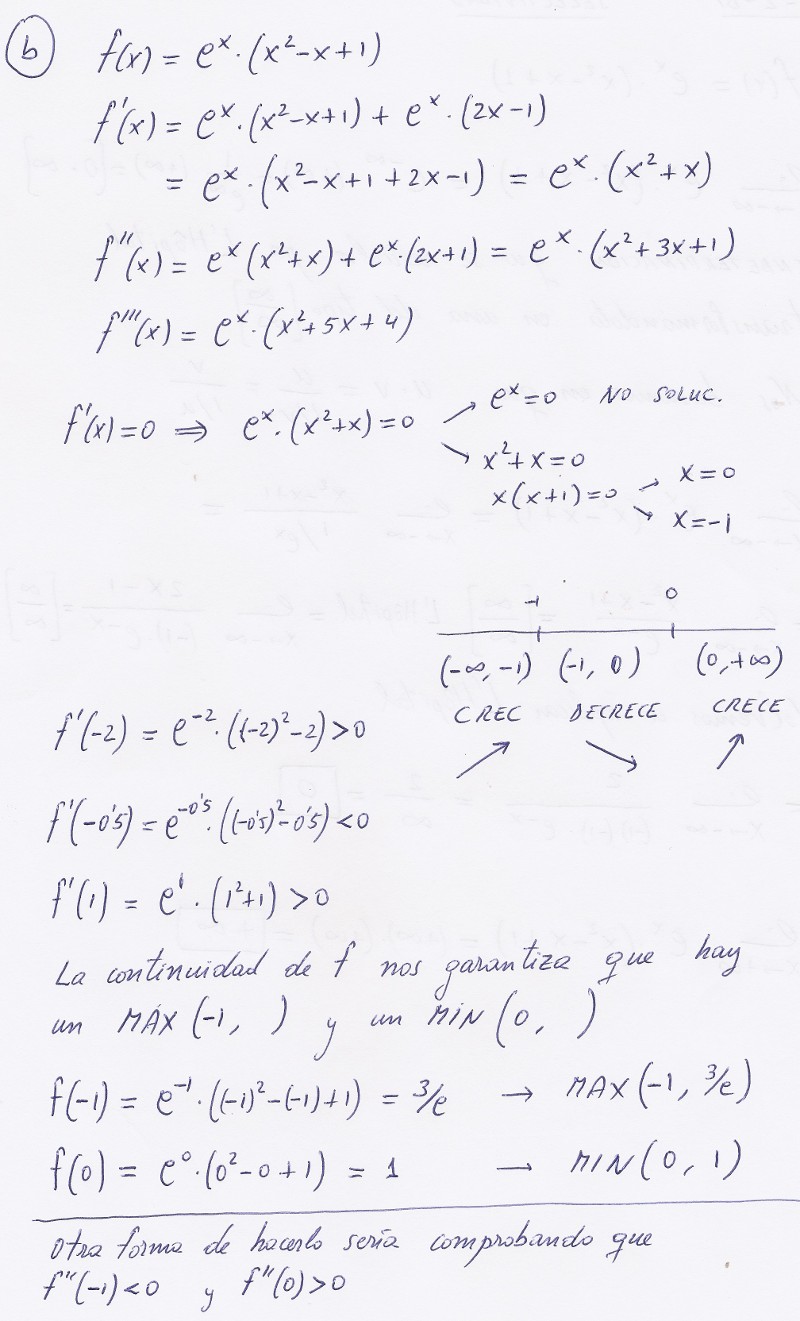 b f(x) = eˣ·(x²-x+1)
f'(x) = eˣ·(x²-x+1) + eˣ·(2x-1)
= eˣ·(x²-x+1+2x-1) = eˣ·(x²+x)
f''(x) = eˣ(x²+x) + eˣ·(2x+1) = eˣ·(x²+3x+1)
f'''(x) = eˣ·(x²+5x+4)
eˣ=0 NO SOLUC.
f'(x)=0 ⇒ eˣ·(x²+x)=0
x²+x=0
x=0
x(x+1)=0
x=-1
-1 0
(-∞,-1) (-1, 0) (0,+∞)
CREC DECRECE CRECE
f'(-2) = e⁻²·((-2)²-2)>0
f'(-0'5) = e⁻⁰'⁵·((-0'5)²-0'5)<0
f'(1) = e¹·(1²+1) >0
La continuidad de f nos garantiza que hay
un MÁX (-1, ) y un MÍN (0, )
f(-1) = e⁻¹·((-1)²-(-1)+1) = 3/e → MAX(-1, 3/e)
f(0) = e⁰·(0²-0+1) = 1 → MIN(0, 1)
Otra forma de hacerlo sería comprobando que
f''(-1)<0 y f''(0)>0